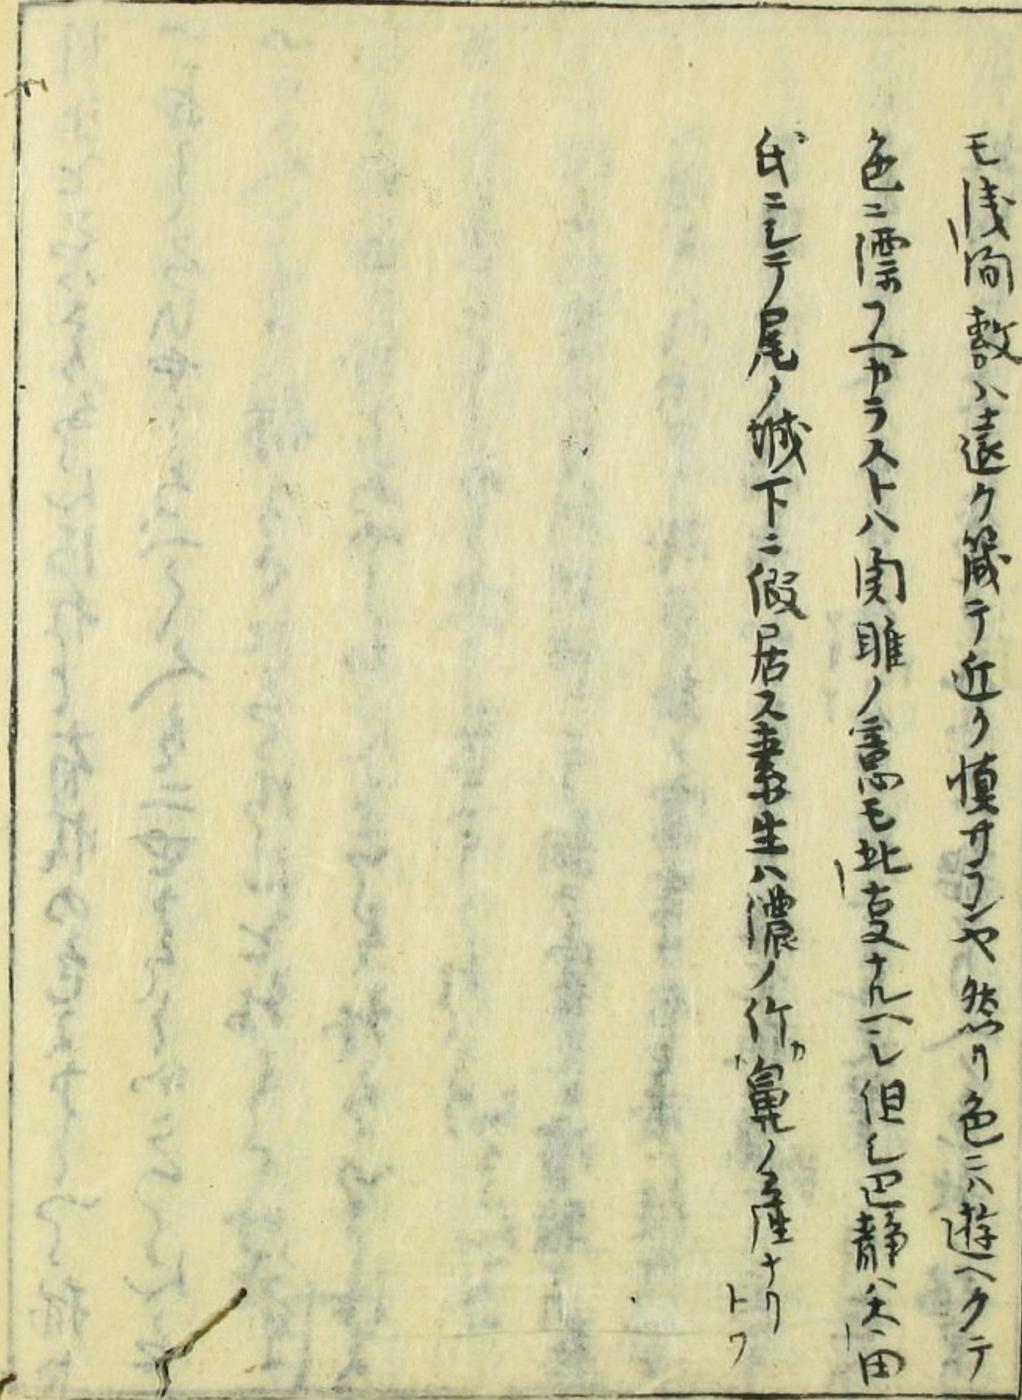 モ浅間敷ハ遠ク箴テ近ク慎サランヤ然リ色ニハ遊ヘクテ
色ニ漂フヘカラストハ関雎ノ意モ此事ナルヘシ但シ巴静ハ太田
氏ニシテ尾ノ城下ニ假居ス素生ハ濃ノ竹カ鼻ノ産ナリ
トワ